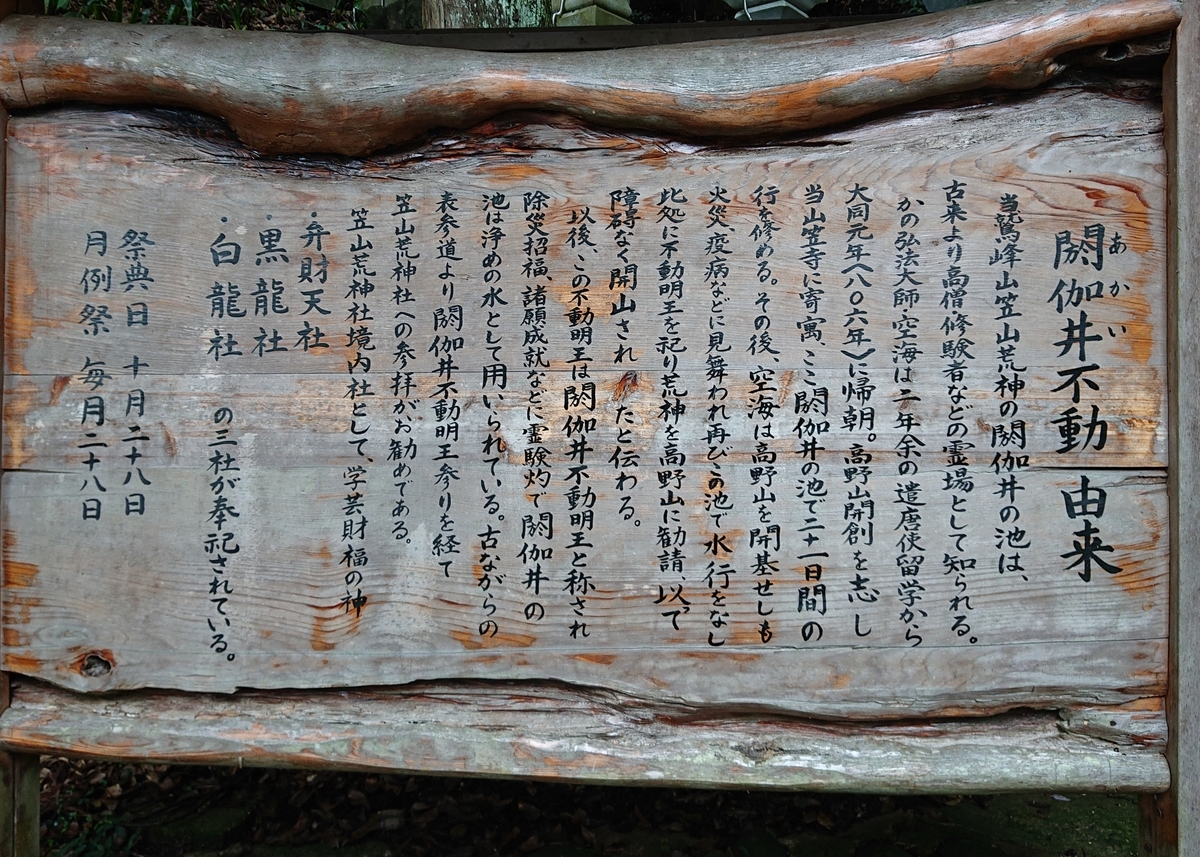 閼伽井不動 由来
あかい
当鷲峰山笠山荒神の閼伽井の池は、
古来より高僧・修験者などの霊場として知られる。
かの弘法大師・空海は二年余の遣唐使留学から
大同元年(八〇六年)に帰朝。高野山開創を志し
当山笠寺に寄寓、ここ閼伽井の池で二十一日間の
行を修める。その後、空海は高野山を開基せしも
火災、疫病などに見舞われ再びこの池で水行をなし
此処に不動明王を祀り荒神を高野山に勧請、以って
障碍なく開山されたと伝わる。
以後、この不動明王は閼伽井不動明王と称され
除災招福、諸願成就などに霊験灼で閼伽井の
池は浄めの水として用いられている。古ながらの
表参道より閼伽井不動明王参りを経て
笠山荒神社への参拝がお勧めである。
笠山荒神社境内社として、学芸財福の神
・弁財天社
・黒龍社
・白龍社 の三社が奉祀されている。
祭典日 十月二十八日
月例祭 毎月二十八日